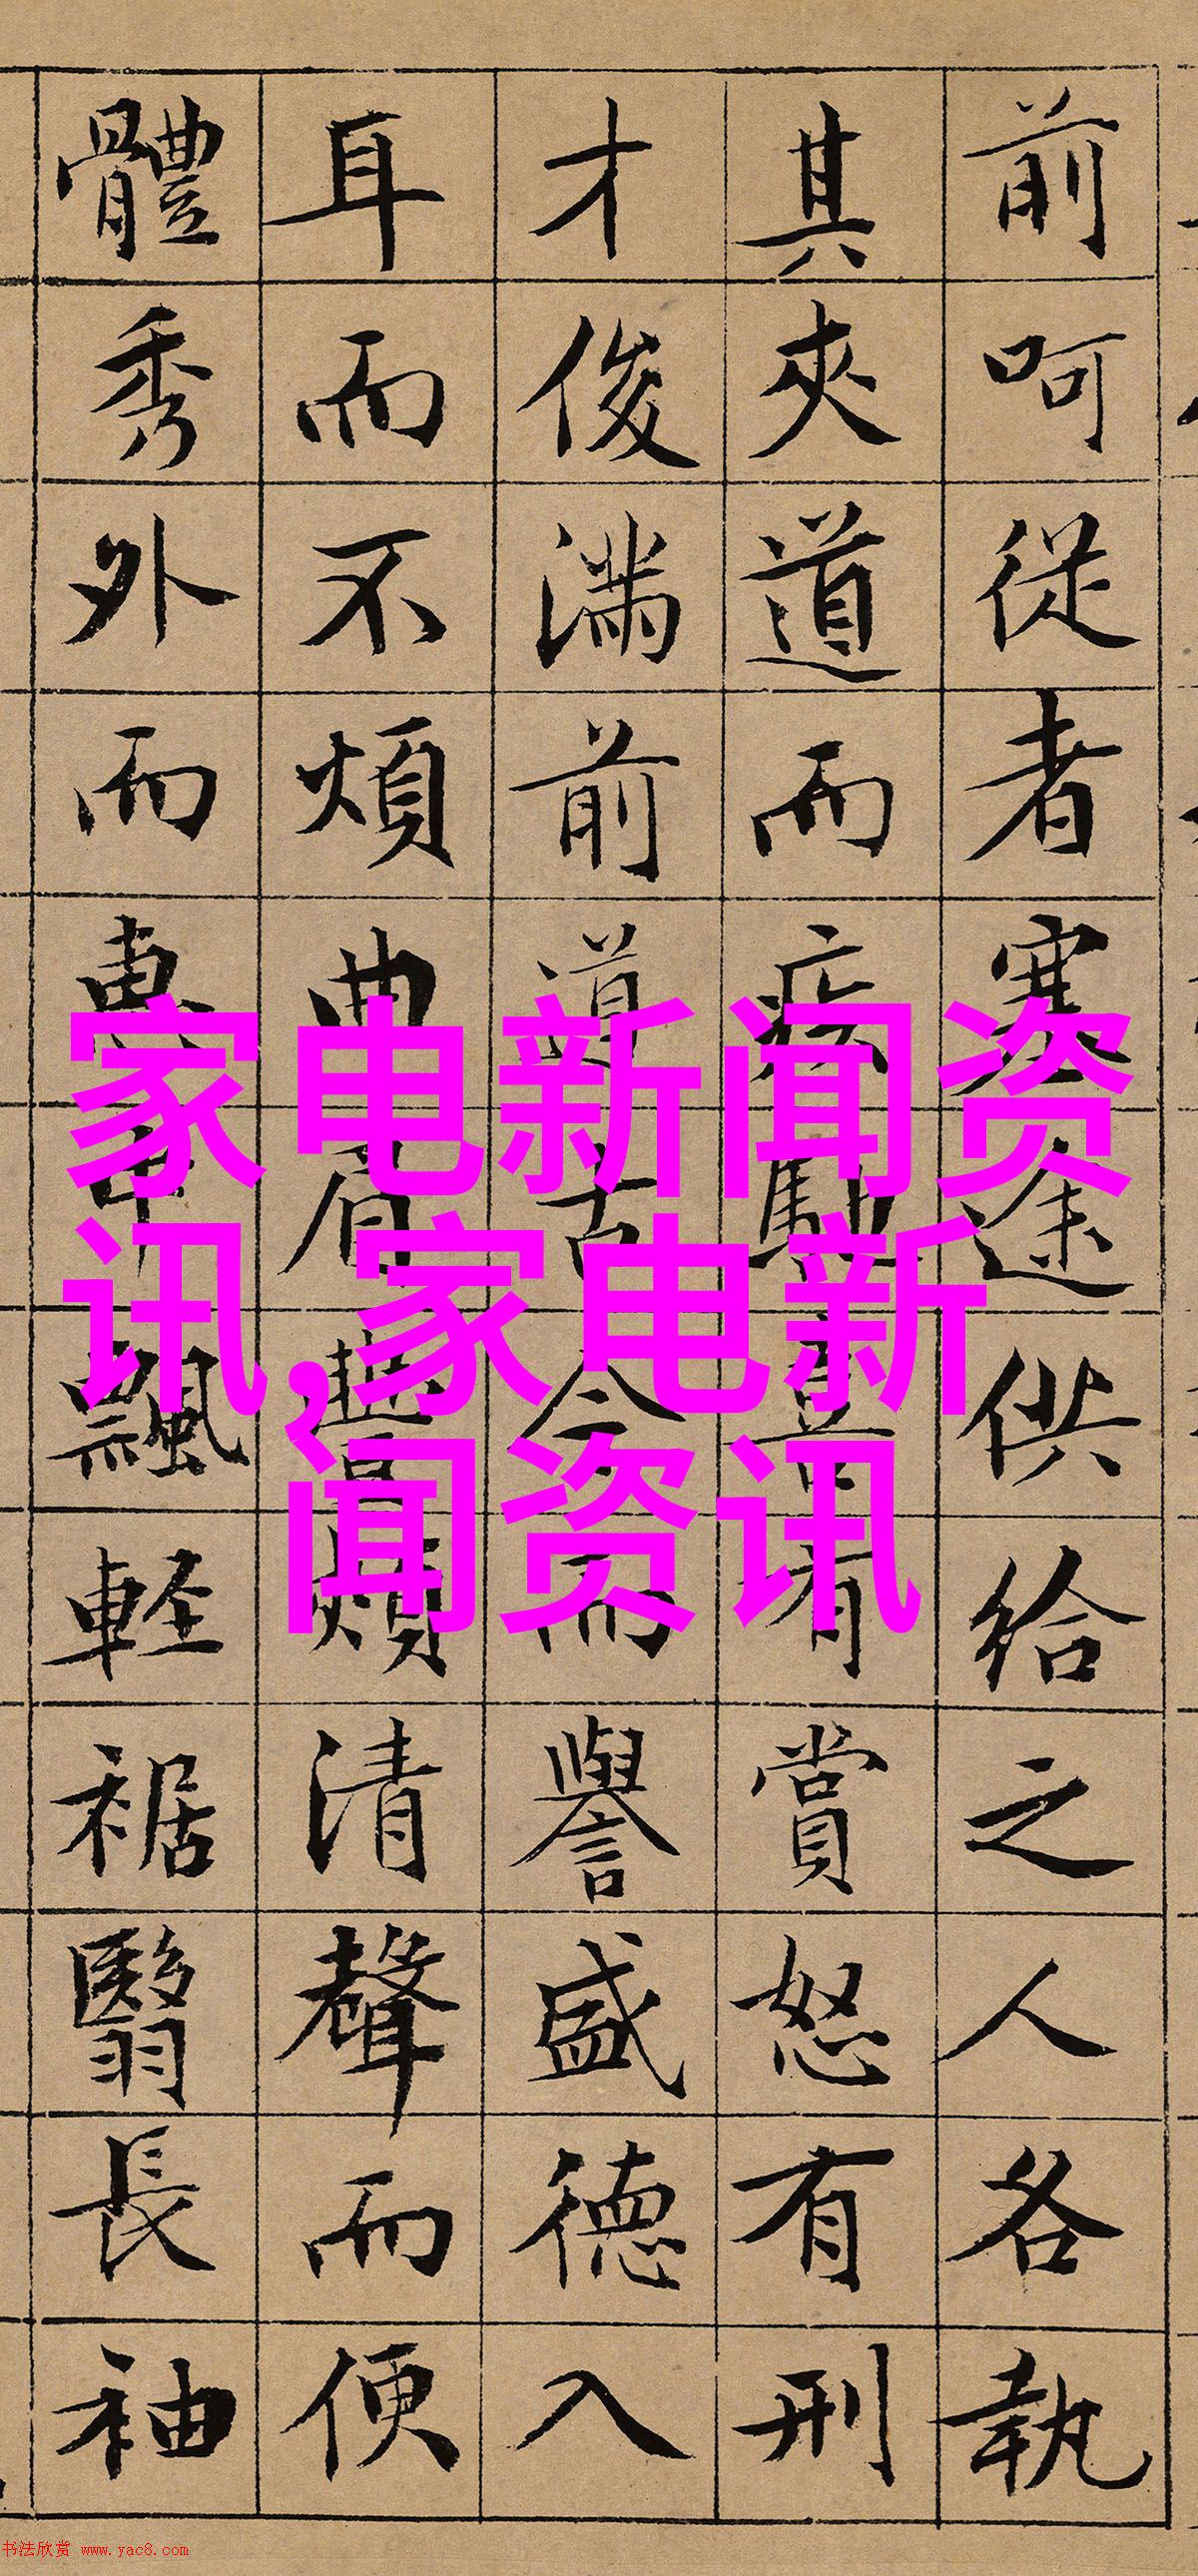 前呵從者塞途供給之人各執
其夾道而疾馳喜有賞怒有刑
才俊滿前道古今而譽盛德入
耳而不煩曲眉豐頰清聲而便
體秀外而惠中飄輕裾翳長袖
家电新闻资
讯,家电新
闻资讯
书法欣赏 www.yac8.com